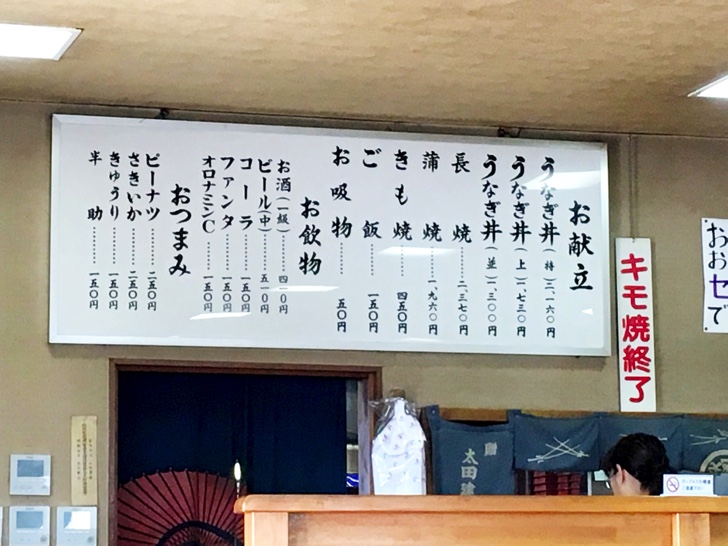 お献立
うなぎ丼(特)三、一六〇円
うなぎ丼(上)二、七三〇円
うなぎ丼(並)一、三〇〇円
長焼……二、三七〇円
蒲焼……一、九六〇円
きも焼……四五〇円
ご飯……一五〇円
お吸物……五〇円
お飲物
お酒(一級)……四一〇円
ビール(中)……五一〇円
コーラ……一五〇円
ファンタ……一五〇円
オロナミンC……一五〇円
おつまみ
ピーナツ……二五〇円
さきいか……二五〇円
きゅうり……一五〇円
半助……一五〇円
キモ焼終了
おお
セ
で
太田